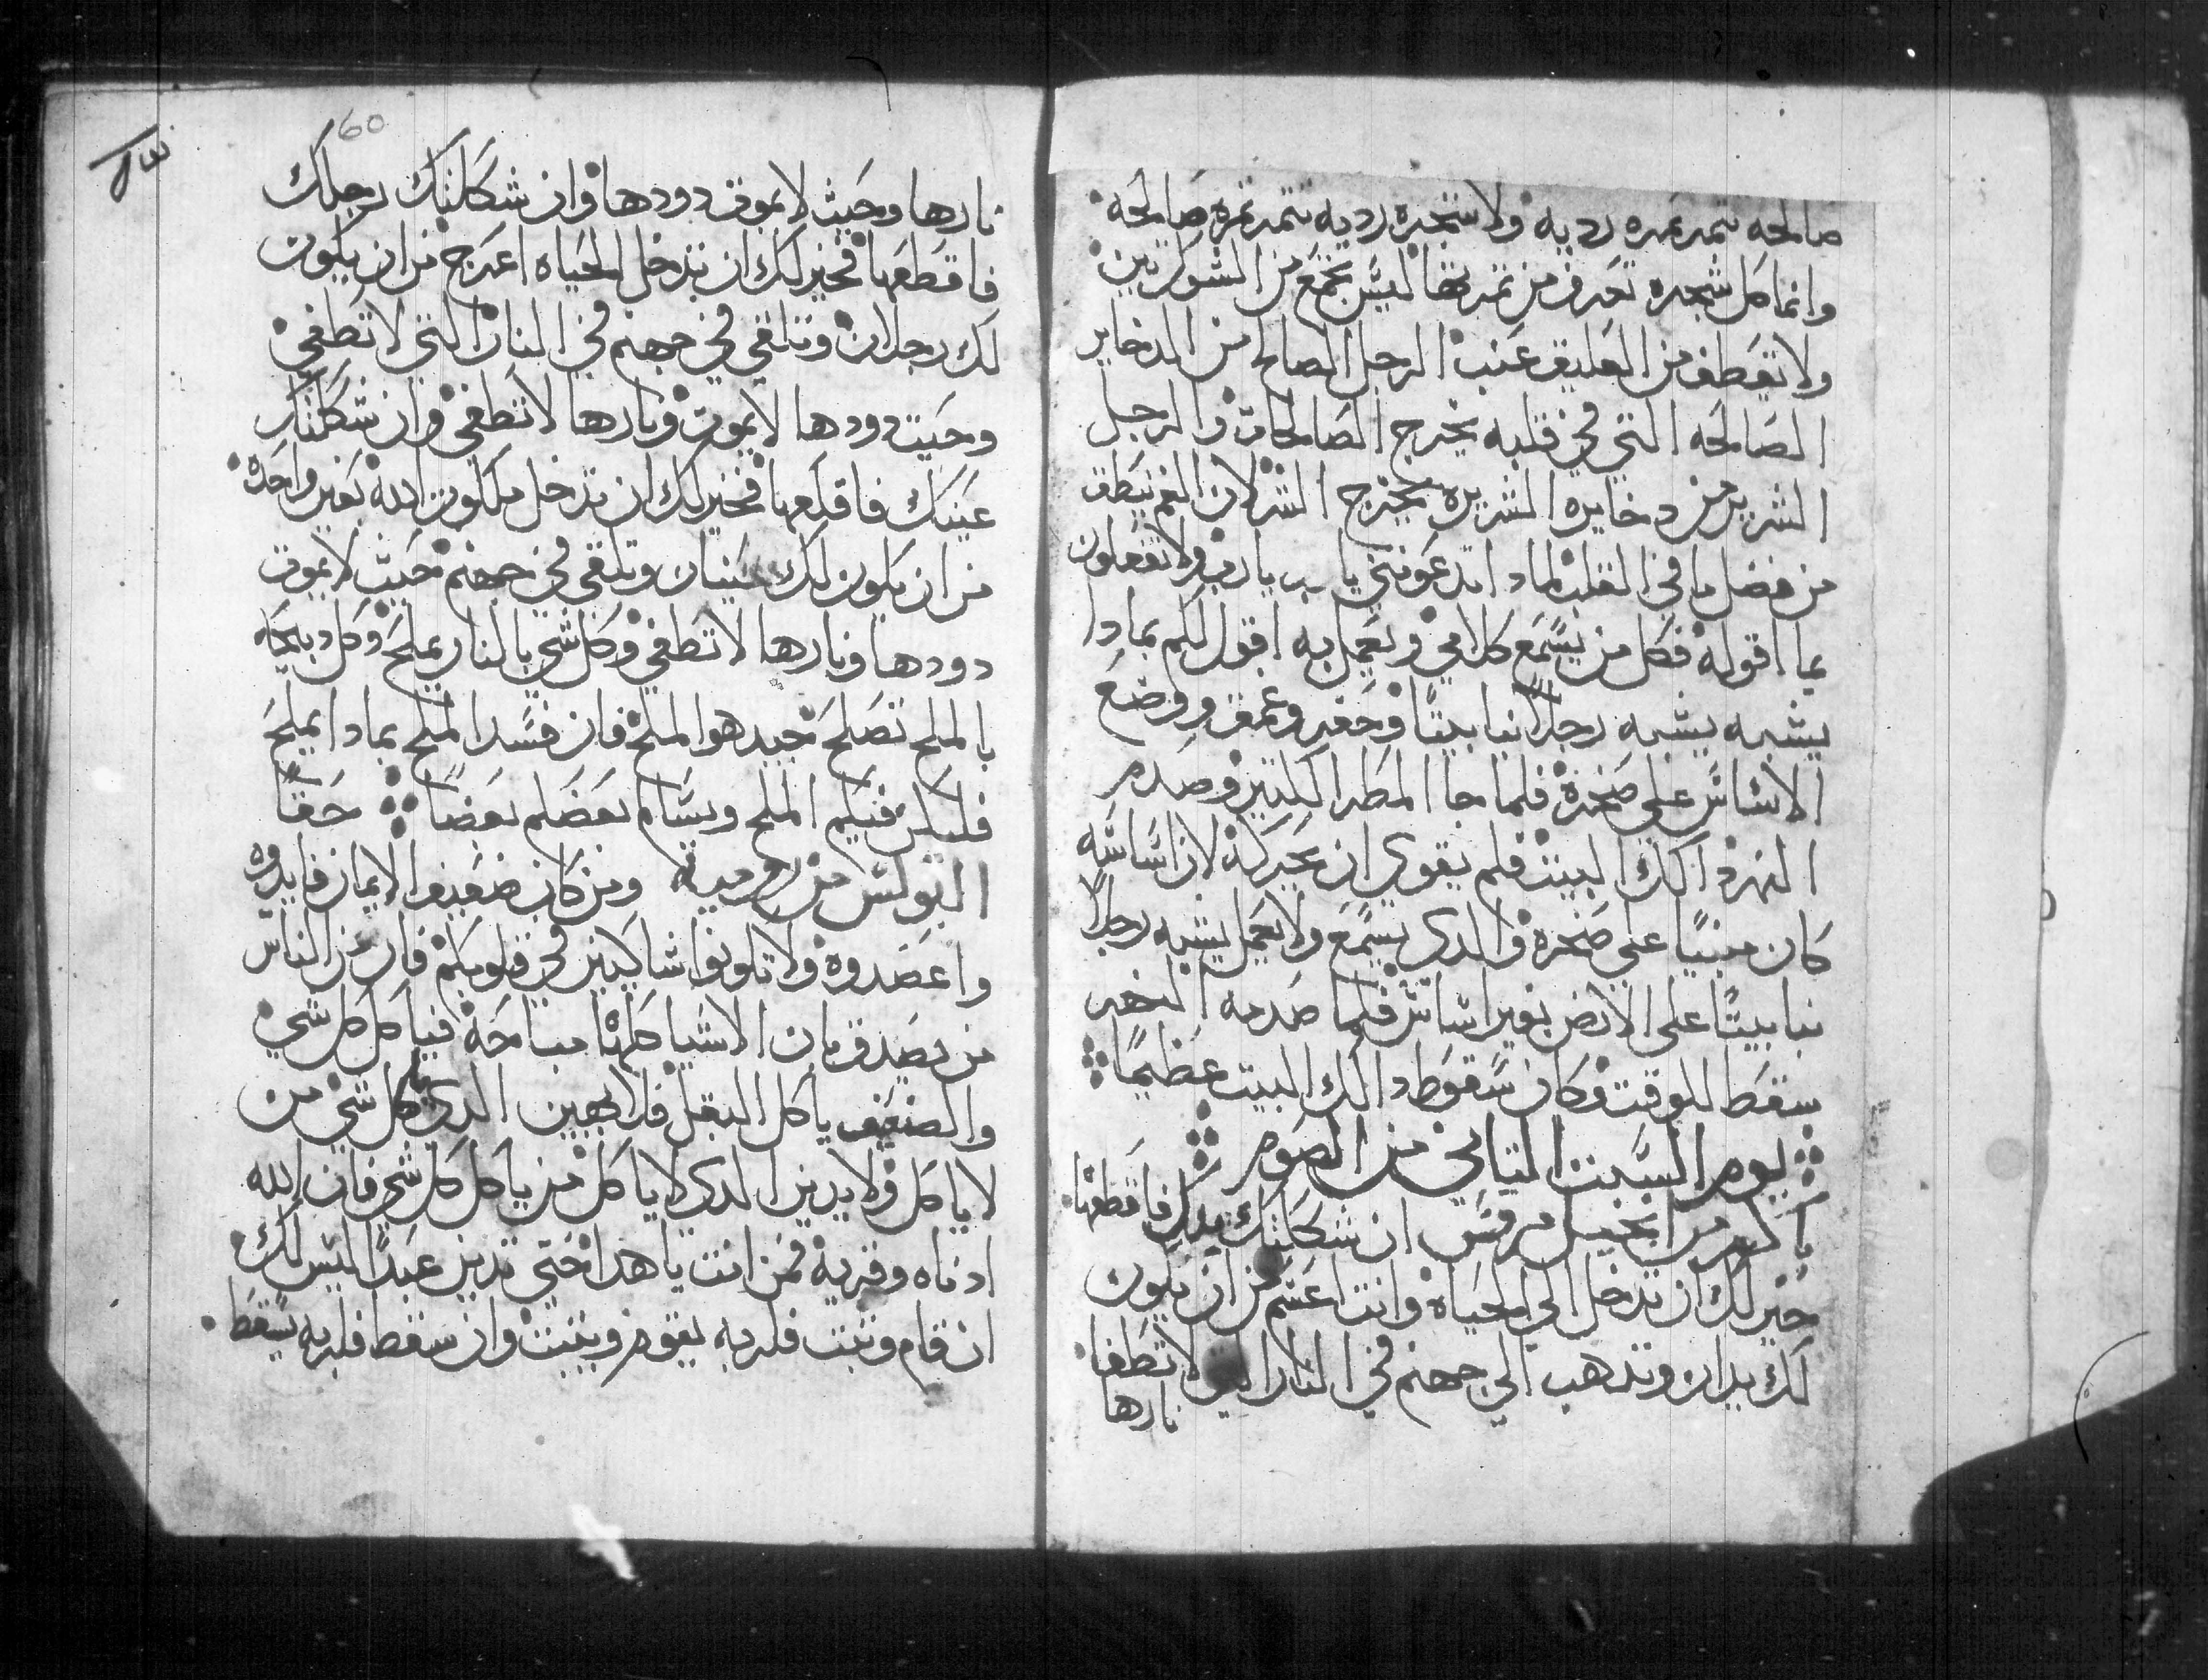 صالحه تتمر تمره رديه ولا شجره رديه تتمر تمره صالحه
وانما كل شجره تعرف من تمرتها ليس يجتمع من الشوك تين
ولا يقطف من العليق عنب الرجل الصالح من الدخاير
الصالحه التي في قلبه يخرج الصالحات والرجل
الشرير من دخايره الشريره يخرج الشر لان الفم ينطق
من فضل ما في القلب لمادا تدعونني يا رب يا رب ولا تفعلون
بما اقوله فكل من يسمع كلامي ويعمل به اقول لكم بمادا
يشبه يشبه رجلا بنا بيتا وحفر وعمق ووضع
الاساس على صخرة فلما جا المطر الكتير وصدم
النهر داك البيت فلم يقوي ان يحركه لان اساسه
كان مبنيا على صخره والدى يسمع ولا يعمل يشبه رجلا
بنا بيتا على الارض بغير اساس فلما صدمه النهر
سقط للوقت وكان سقوط دالك البيت عظيما
يوم السبت التاني من الصوم
باكر من انجيل مرقس ان شككتك يدك فاقطعها
خير لك ان تدخل الي الحياه وانت اعسم من ان يكون
لك يدان وتدهب الي جهنم في النار التي لا تطفا
نارها
60
نارها وحيث لا يموت دودها وان شككتك رجلك
فاقطعها فخير لك ان تدخل الحياه اعرج من ان يكون
لك رجلان وتلقي في جهنم في النار التي لا تطفي
وحيت دودها لا يموت ونارها لا تطفي وان شككتك
عينك فاقلعها فخير لك ان تدخل ملكوت الله بعين واحدة
من ان يكون لك عينان وتلقي في جهنم حيث لا يموت
دودها ونارها لا تطفي وكل شي بالنار يملح وكل دبيحه
بالملح تصلح جيد هو الملح فان فسد الملح بمادا يملح
فليكن فيكم الملح وتسالم بعضكم بعضا حقا
البولس من روميه ومن كان ضعيف الايمان فايدوه
واعضدوه ولا تكونوا شاكين في قلوبكم فان من الناس
من يصدق بان الاشيا كلها مباحة فياكل كل شي
والضعيف ياكل البقل فلا يهين الدى ياكل كل شي من
لا ياكل ولا يدين الدى لا ياكل من ياكل كل شي فان الله
ادناه وقربه فمن انت يا هدا حتى تدين عبدا ليس لك
ان قام وتبت فلربه يقوم ويتبت وان سقط فلربه يسقط